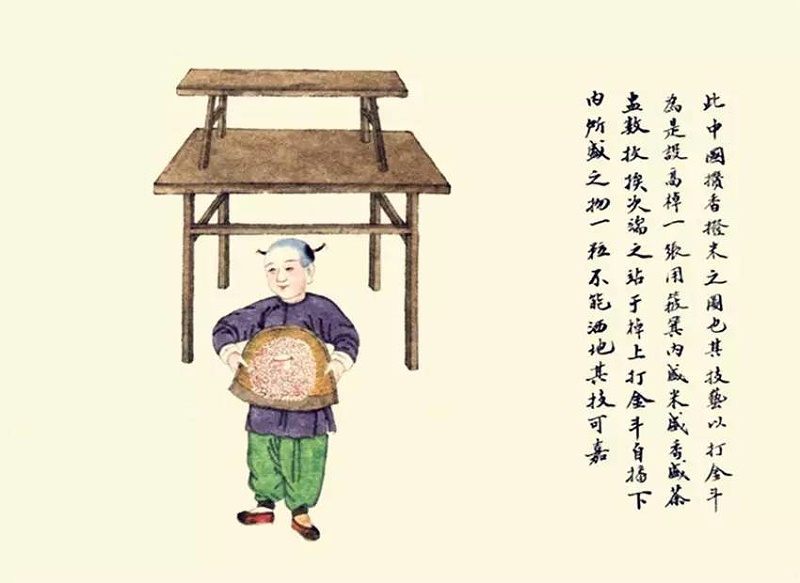 此中國攢香撥米之圖也其技藝以打金斗
為是設高棹一張用簸箕內盛米盛香盛茶
盅數枚挨次端之站于棹上打金斗自揚下
內所盛之物一粒不能洒地其技可嘉